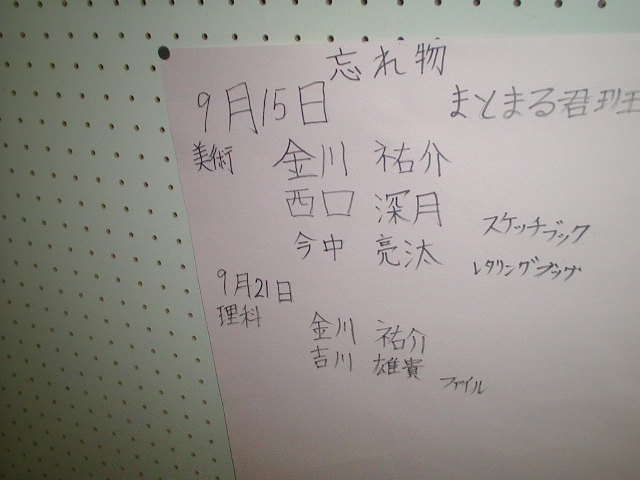 忘れ物
9月15日 まとまる君班
美術 金川 祐介
西口 深月 スケッチブック
今中 亮汰 レタリングブック
9月21日
理科 金川 祐介
吉川 雄貴 ファイル